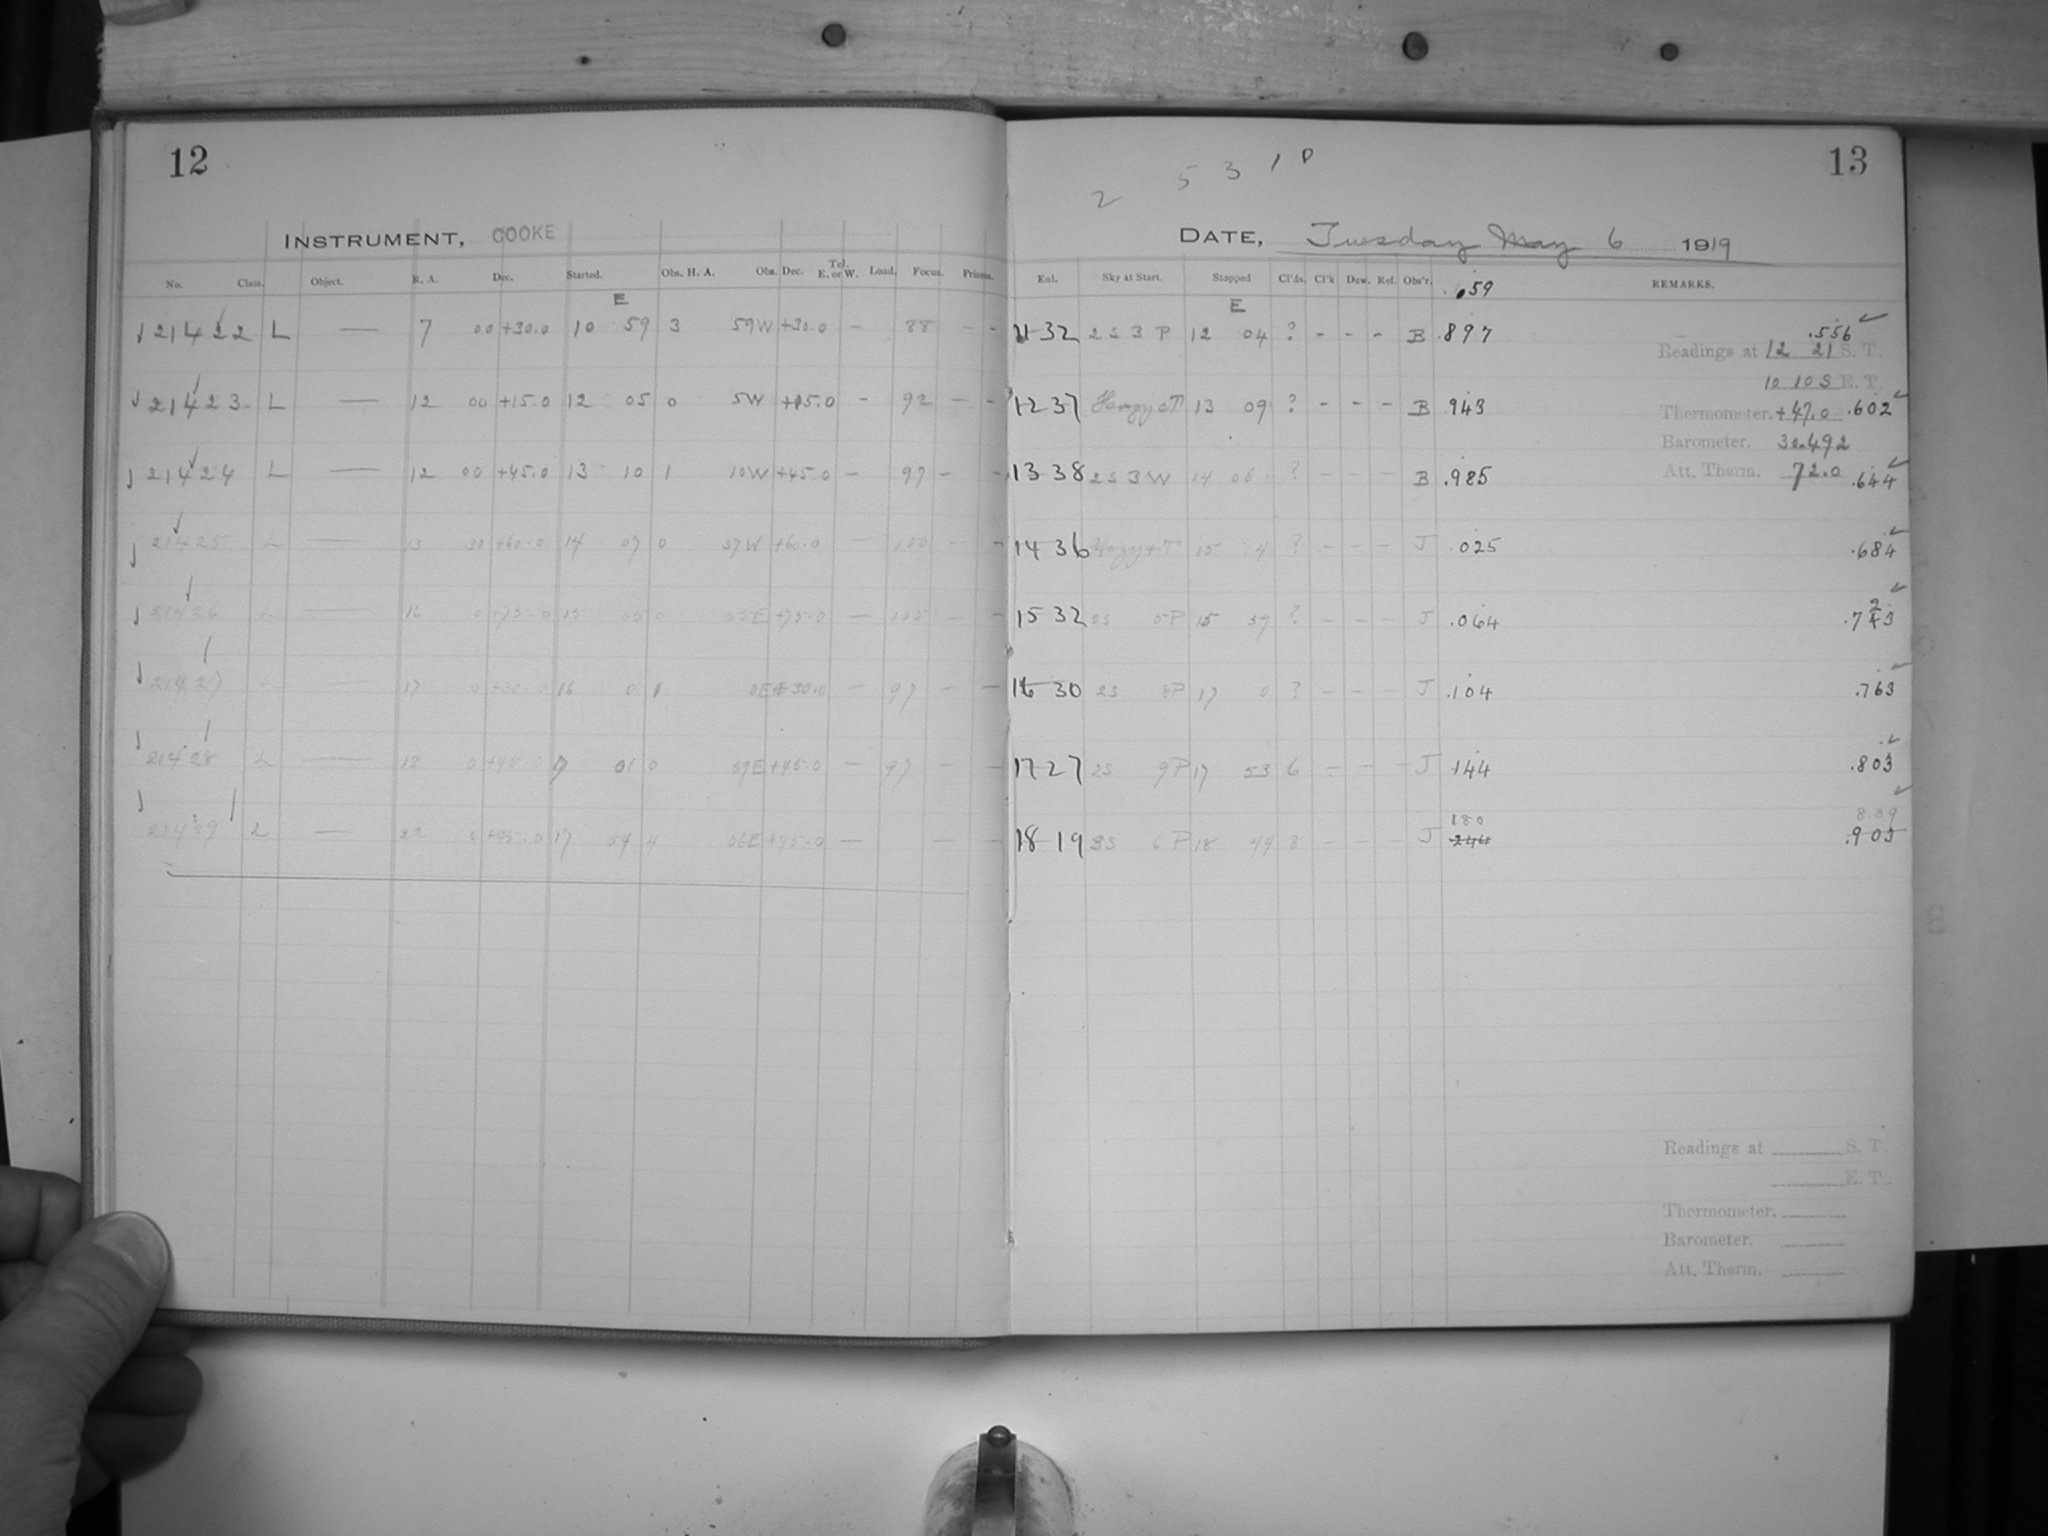 12
INSTRUMENT, COOKE
No. Class. Object. R. A. Dec. Started. Obs. H. A. Obs. Dec. Tel. E. or W. Load. Focus. Prisms.
E
21422 L — 7 00 +30.0 10 59 3 59W +30.0 - 88 - -
21423 L — 12 00 +15.0 12 05 0 5W +15.0 - 92 - -
21424 L — 12 00 +45.0 13 10 1 10W +45.0 - 97 - -
21425 L — 13 30 +60.0 14 07 0 37W +60.0 - 100 - -
21426 L — 16 0 +75.0 15 05 0 55E +75.0 - 105 - -
21427 L — 17 0 +30.0 16 0 1 0E +30.0 - 97 - -
21428 L — 18 0 +45.0 17 01 0 59E +45.0 - 97 - -
21429 L — 22 0 +45.0 17 54 4 06E +45.0 - - -
13
2 5 3 1 P
DATE, Tuesday May 6 1919
Exl. Sky at Start. Stopped Cl'ds. Cl'k Dew. Rel. Obs'r. .659 REMARKS.
E
11 32 2 S 3 P 12 04 ? - - - B .897 .556
Readings at 12 21 S. T.
10 10 S E. T.
12 37 Hazy cT 13 09 ? - - - B .943 Thermometer. +47.0 .602
Barometer. 30.492
13 38 2 S 3 W 14 06 ? - - - B .985 Att. Therm. 72.0 .644
14 36 Hazy +T 15 4 ? - - - J .025 .684
15 32 2S 5P 15 59 ? - - - J .064 .723
16 30 2S 8P 17 0 ? - - - J .104 .763
17 27 2S 9P 17 53 6 - - - J .144 .803
180 8.39
18 19 3S 6P 18 44 8 - - - J 244 .903
Readings at S. T.
E. T.
Thermometer.
Barometer.
Att. Therm.